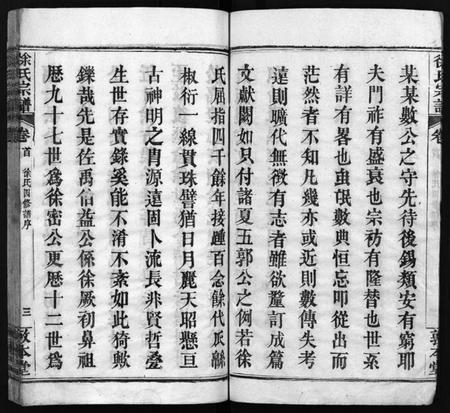 徐氏宗譜
卷
某某數公之守先待後錫類安有窮耶
夫門祚有盛衰也宗祊有隆替也世系
有詳有畧也虫氓數典恒忘叩從出而
茫然者不知凡幾亦或近則數傳失考
遠則曠代無徵有志者雖欲釐訂成篇
文獻闕如只付諸夏五郭公之例若徐
氏屈指四千餘年接踵百念餘代瓜緜
椒衍一線貫珠譬猶日月麗天昭懸亘
古神明之胄源遠固卜流長非賢哲疊
生世存實錄奚能不淆不紊如此猗歟
鑠哉先是佐禹伯益公係徐厥初鼻祖
歷九十七世爲徐密公更歷十二世爲
徐氏宗譜
卷首
徐氏四修譜序
三
敦本堂